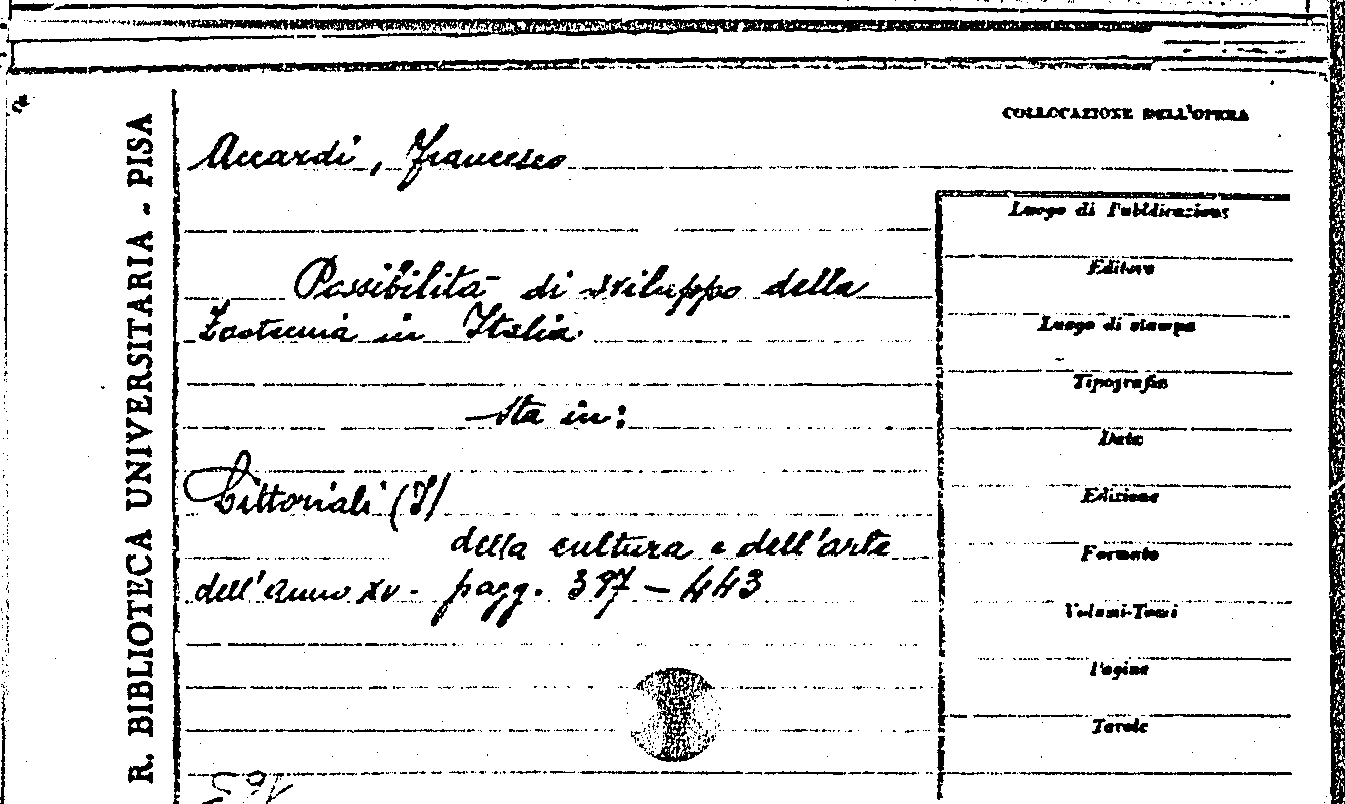 R. BIBLIOTECA UNIVERSITARIA - PISA
COLLOCAZIONE DELL'OPERA
Accardi, Francesco
Possibilità di sviluppo della
Zootecnia in Italia.
sta in:
Littoriali (I)
della cultura e dell'arte
dell'Anno XV. pagg. 397 - 443
Luogo di Pubblicazione
Editore
Luogo di stampa
Tipografia
Data
Edizione
Formato
Volumi-Tomi
Pagine
Tavole